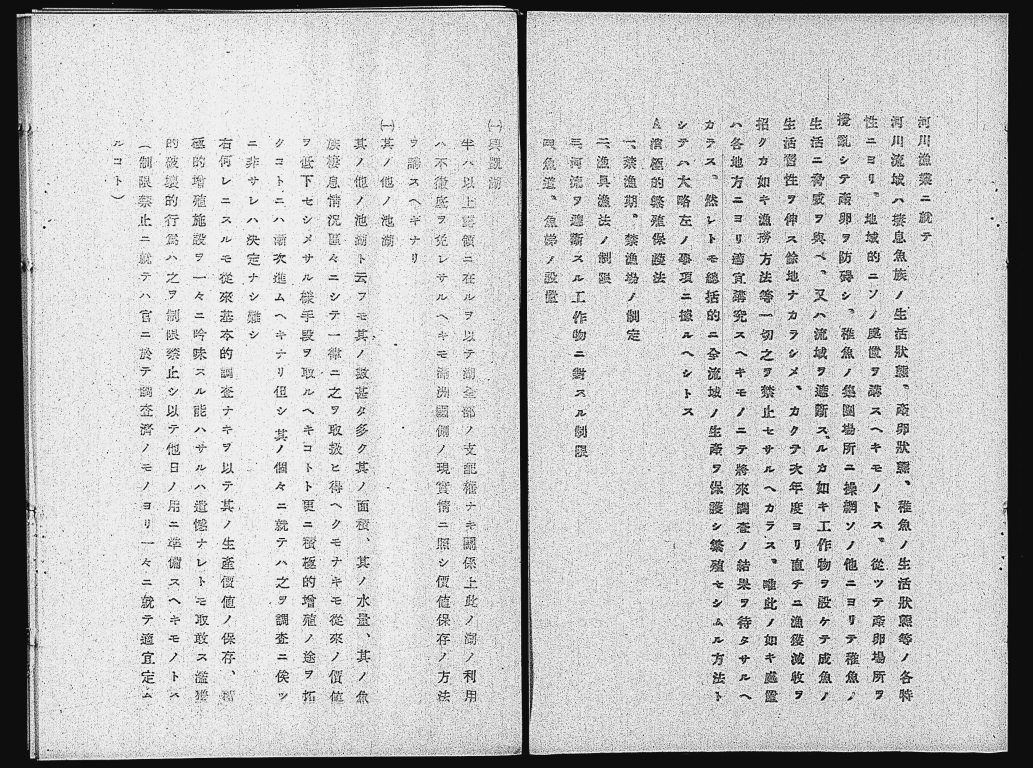 河川漁業ニ就テ
河川流域ハ棲息魚族ノ生活狀態、產卵狀態、稚魚ノ生活狀態等ノ各特
性ニヨリ、地域的ニソノ處置ヲ講スヘキモノトス。從ツテ產卵場所ヲ
攪亂シテ產卵ヲ防碍シ、稚魚ノ集團場所ニ操網ソノ他ニヨリテ稚魚ノ
生活ニ脅威ヲ與ヘ、又ハ流域ヲ遮斷スルカ如キ工作物ヲ設ケテ成魚ノ
生活習性ヲ伸ス餘地ナカラシメ、カクテ次年度ヨリ直チニ漁獲減收ヲ
招クカ如キ漁撈方法等一切之ヲ禁止セサルヘカラス。唯此ノ如キ處置
ハ各地方ニヨリ適宜講究スヘキモノニテ將來調査ノ結果ヲ待タサルヘ
カラス、然レトモ總括的ニ全流域ノ生產ヲ保護シ繁殖セシムル方法ト
シテハ大略左ノ事項ニ據ルヘシトス
A 消極的繁殖保護法
一、禁漁期、禁漁場ノ制定
二、漁具漁法ノ制限
三、河流ヲ遮斷スル工作物ニ對スル制限
四、魚道、魚梯ノ設置
㈠興凱湖
半ハ以上露領ニ在ルヲ以テ湖全部ノ支配權ナキ關係上此ノ湖ノ利用
ハ不徹底ヲ免レサルヘキモ滿洲國側ノ現實情ニ照シ價値保存ノ方法
ヲ講スヘキナリ
㈠其ノ他ノ池湖
其ノ他ノ池湖ト云フモ其ノ數甚タ多ク其ノ面積、其ノ水量、其ノ魚
族棲息情況區々ニシテ一律ニ之ヲ取扱ヒ得ヘクモナキモ從來ノ價値
ヲ低下セシメサル樣手段ヲ取ルヘキコトト更ニ積極的增殖ノ途ヲ拓
クコトニハ漸次進ムヘキナリ但シ其ノ個々ニ就テハ之ヲ調査ニ俟ツ
ニ非サレハ決定ナシ難シ
右何レニスルモ從來基本的調査ナキヲ以テ其ノ生產價値ノ保存、積
極的增殖施設ヲ一々ニ吟味スル能ハサルハ遺憾ナレトモ取敢ス濫獲
的破壞的行爲ハ之ヲ制限禁止シ以テ他日ノ用ニ準備スヘキモノトス
（制限禁止ニ就テハ官ニ於テ調査濟ノモノヨリ一々ニ就テ適宜定ム
ルコト）